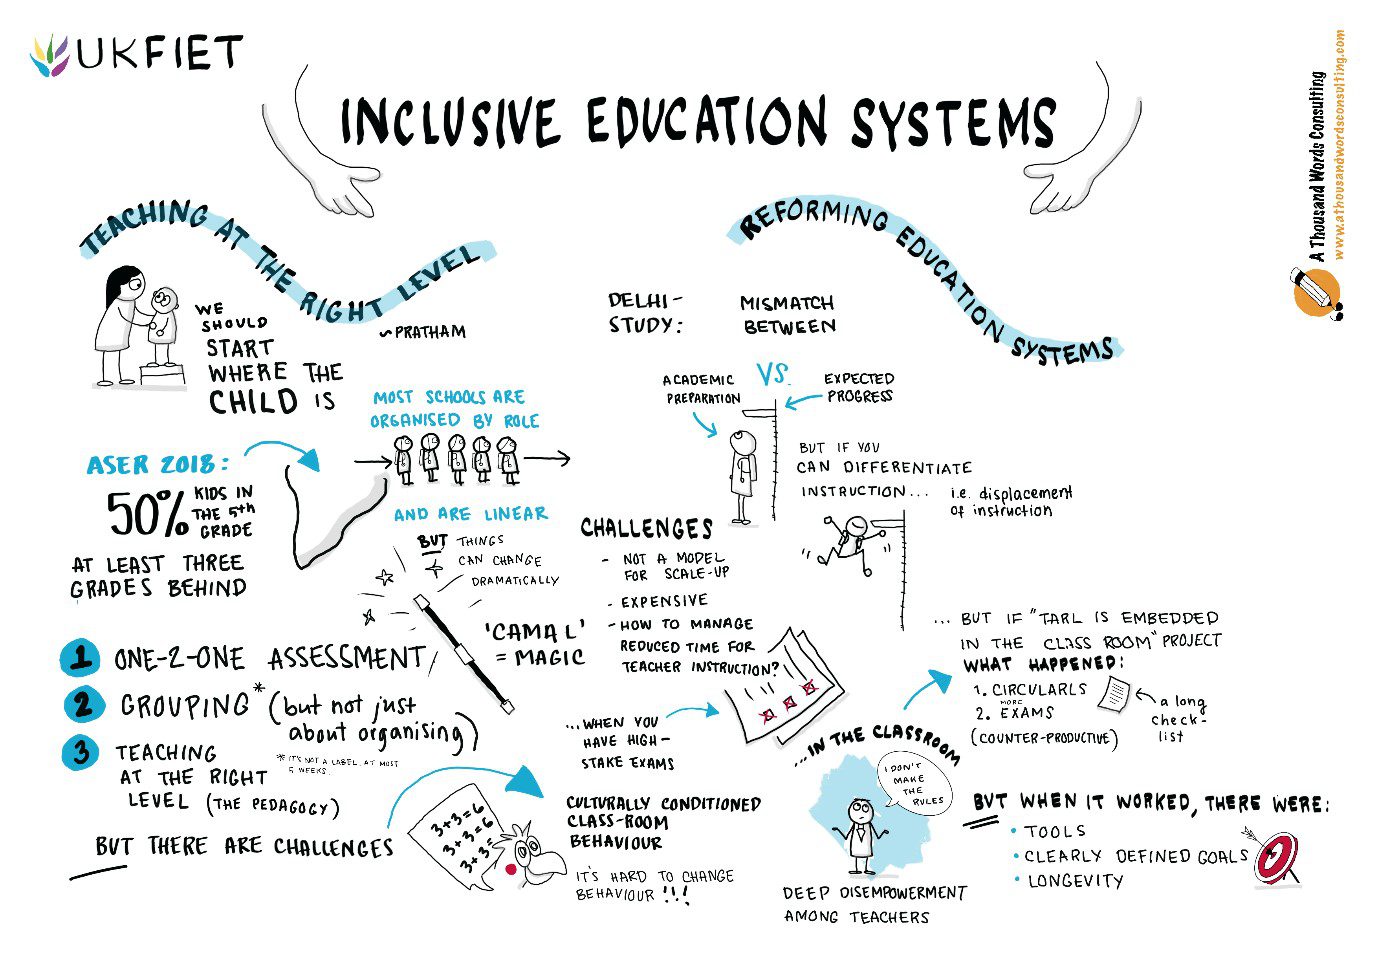 UKFIET
INCLUSIVE EDUCATION SYSTEMS
A Thousand Words Consulting
www.athousandwordsconsulting.com
TEACHING AT THE RIGHT LEVEL
~PRATHAM
WE
SHOULD
START
WHERE THE
CHILD IS
MOST SCHOOLS ARE
ORGANISED BY ROLE
AND ARE LINEAR
BUT THINGS
CAN CHANGE
DRAMATICALLY
ASER 2018:
50% KIDS IN
THE 5th
GRADE
AT LEAST THREE
GRADES BEHIND
'CAMAL'
= MAGIC
1 ONE-2-ONE ASSESSMENT
2 GROUPING* (but not just
about organising)
3 TEACHING
AT THE RIGHT
LEVEL (THE PEDAGOGY)
* IT'S NOT A LABEL. AT MOST
5 WEEKS.
BUT THERE ARE CHALLENGES
3+3=6
3+3=6
3+3=
REFORMING EDUCATION SYSTEMS
DELHI-
STUDY:
MISMATCH
BETWEEN
ACADEMIC
PREPARATION
VS.
EXPECTED
PROGRESS
BUT IF YOU
CAN DIFFERENTIATE
INSTRUCTION...
i.e. displacement
of instruction
CHALLENGES
- NOT A MODEL
FOR SCALE-UP
- EXPENSIVE
- HOW TO MANAGE
REDUCED TIME FOR
TEACHER INSTRUCTION?
...WHEN YOU
HAVE HIGH-
STAKE EXAMS
CULTURALLY CONDITIONED
CLASS-ROOM
BEHAVIOUR
IT'S HARD TO CHANGE
BEHAVIOUR !!!
...IN THE CLASSROOM
I DON'T
MAKE
THE
RULES
DEEP DISEMPOWERMENT
AMONG TEACHERS
... BUT IF "TARL IS EMBEDDED
IN THE CLASS ROOM" PROJECT
WHAT HAPPENED:
1. CIRCULARLS
MORE
2. EXAMS
(COUNTER-PRODUCTIVE)
a long
check-
list
BUT WHEN IT WORKED, THERE WERE:
• TOOLS
• CLEARLY DEFINED GOALS
• LONGEVITY